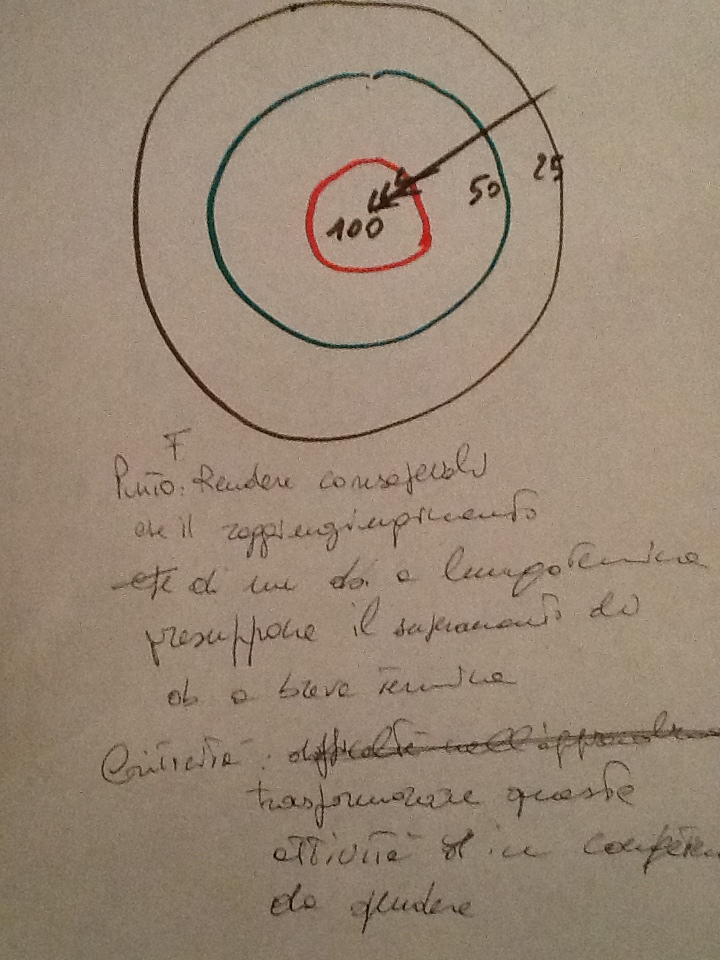 25
50
100
F
Punto: Rendere consapevoli
che il raggiungimprimento
di un ob. a lungo termine
presuppone il superamento di
ob a breve termine
Criticità: difficoltà nell'
trasformazione queste
attività in competen
da